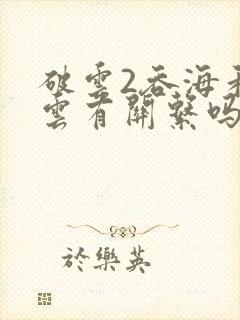 破雲2吞海和破
雲有關繫嗎
於樂英